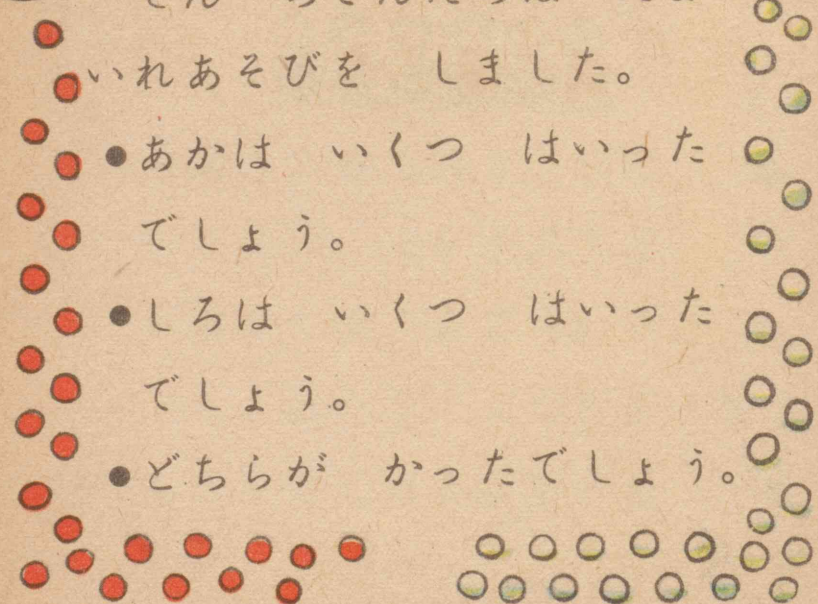 いれあそびを しました。
●あかは いくつ はいった
でしょう。
●しろは いくつ はいった
でしょう。
●どちらが かったでしょう。